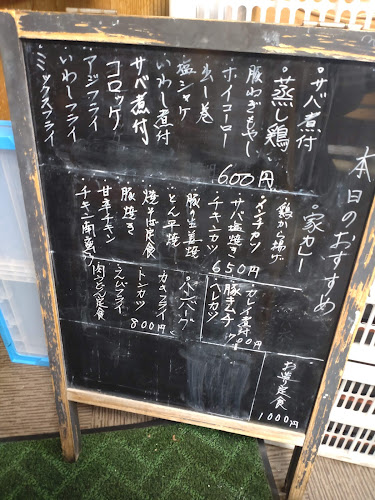 本日のおすすめ
・サバ煮付
・蒸し鶏
豚ねぎもやし
ホイコーロー
出し巻
塩シャケ
いわし煮付
サバ煮付
コロッケ
アジフライ
いわしフライ
ミックスフライ
600円
・家カレー
鶏から揚げ
メンチカツ
サバ塩焼き
チキンカツ
豚の生姜焼
とん平焼
焼そば定食
豚焼き
甘辛チキン
チキン南蛮
650円
・カレイ煮付
豚キムチ
ヘレカツ
700円
・ハンバーグ
カキフライ
トンカツ
えびフライ
肉うどん定食
800円
お造り定食
1000円